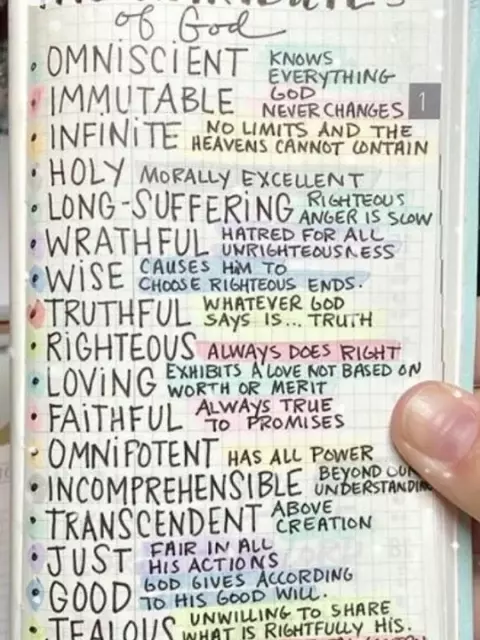 of God
OMNISCIENT KNOWS EVERYTHING
IMMUTABLE GOD NEVER CHANGES 1
INFINITE NO LIMITS AND THE HEAVENS CANNOT CONTAIN
HOLY MORALLY EXCELLENT
LONG-SUFFERING RIGHTEOUS ANGER IS SLOW
WRATHFUL HATRED FOR ALL UNRIGHTEOUSNESS
WISE CAUSES HIM TO CHOOSE RIGHTEOUS ENDS.
TRUTHFUL WHATEVER GOD SAYS IS... TRUTH
RIGHTEOUS ALWAYS DOES RIGHT
LOVING EXHIBITS A LOVE NOT BASED ON WORTH OR MERIT
FAITHFUL ALWAYS TRUE TO PROMISES
OMNIPOTENT HAS ALL POWER
INCOMPREHENSIBLE BEYOND OUR UNDERSTANDING
TRANSCENDENT ABOVE CREATION
JUST FAIR IN ALL HIS ACTIONS
GOOD GOD GIVES ACCORDING TO HIS GOOD WILL.
JEALOUS UNWILLING TO SHARE WHAT IS RIGHTFULLY HIS.